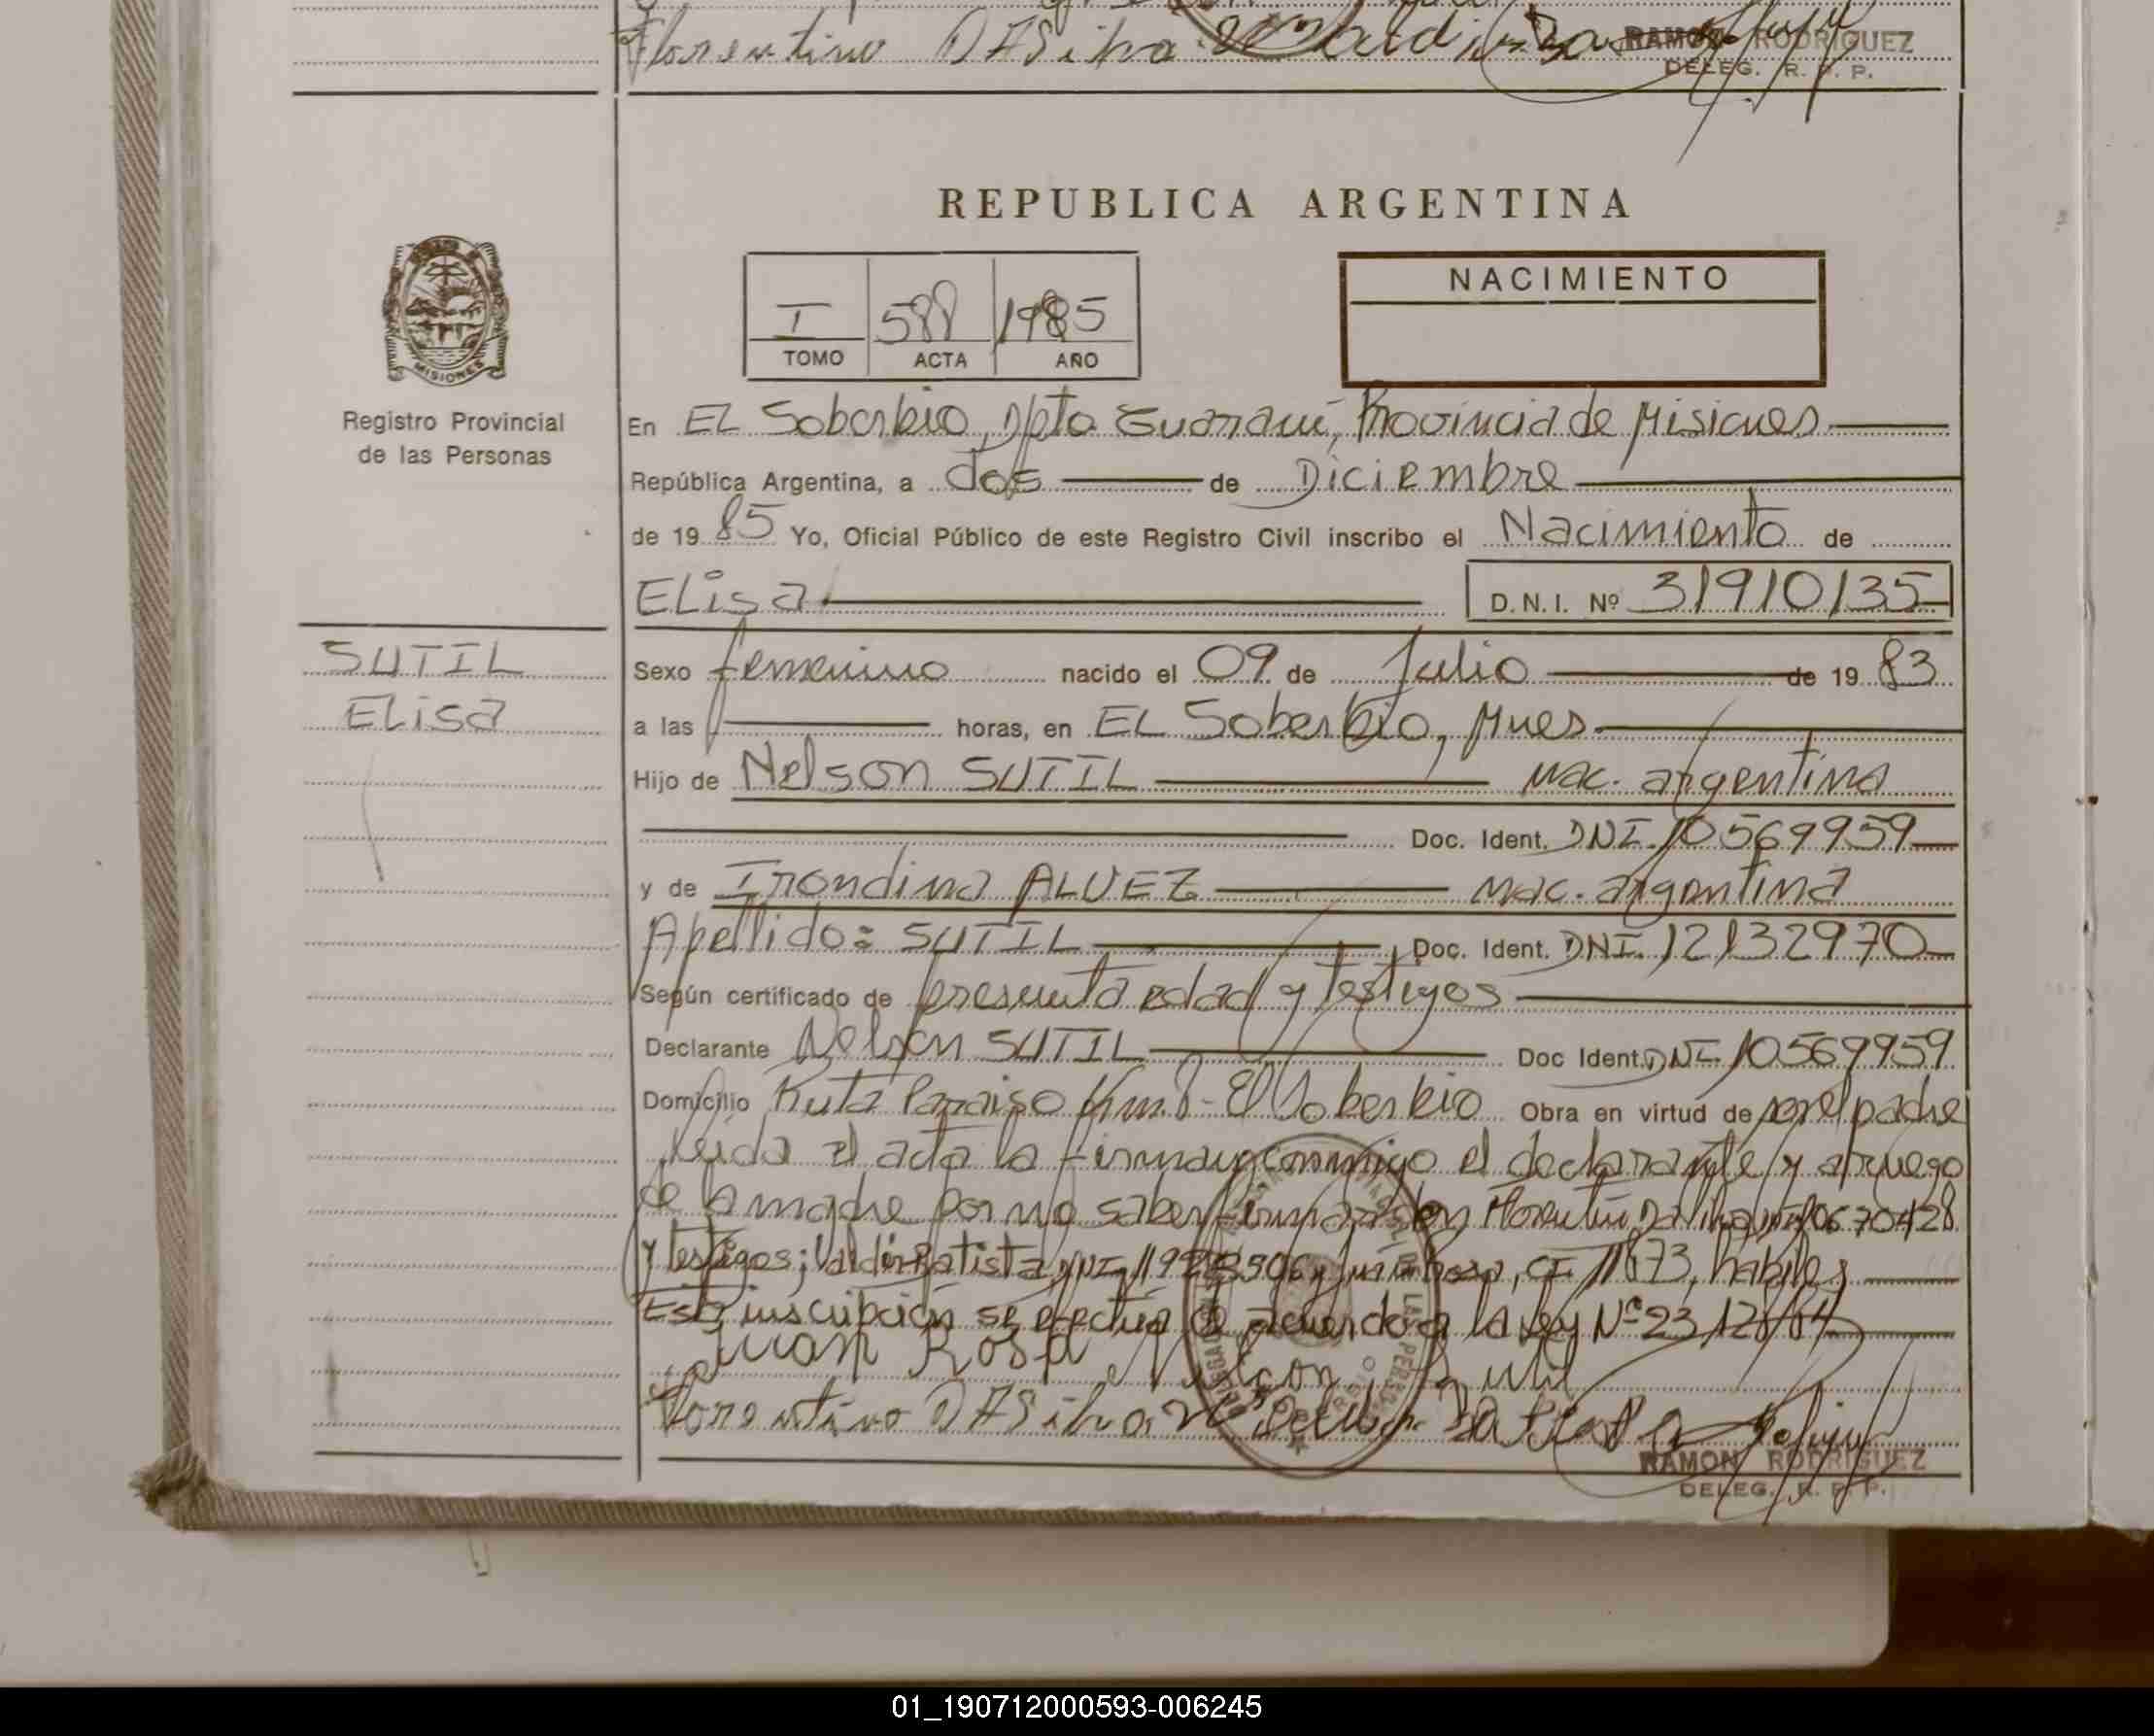 Florentino DASilva
RAMON RODRIGUEZ
DELEG. R. P. P.
REPUBLICA ARGENTINA
MISIONES
Registro Provincial
de las Personas
I 588 1985
TOMO ACTA AÑO
NACIMIENTO
En EL Soberbio, Dpto Guaraní, Provincia de Misiones
República Argentina, a dos de Diciembre
de 1985 Yo, Oficial Público de este Registro Civil inscribo el Nacimiento de
Elisa D.N.I. Nº 31910135
SUTIL
Elisa
Sexo femenino nacido el 09 de Julio de 1983
a las horas, en EL Soberbio, Mnes.
Hijo de Nelson SUTIL nac. argentina
Doc. Ident. DNI. 10569959
y de Irondina ALVEZ nac. argentina
Apellido: SUTIL Doc. Ident. DNI. 12132970
Según certificado de presunta edad y testigos
Declarante Nelson SUTIL Doc Ident. DNI. 10569959
Domicilio Ruta Paraiso Km. - El Soberbio Obra en virtud de ser el padre
Leida el acta la firman conmigo el declarante y a ruego
de la madre por no saber firmar don Florentin Da Silva
y testigos; Valdir Batista habiles
Esta inscripcion se efectúa de acuerdo a la Ley Nº 23
Juan Rosa Nelson Sutil
Florentino DASilva Batista
RAMON RODRIGUEZ
DELEG. R. P. P.
01_190712000593-006245